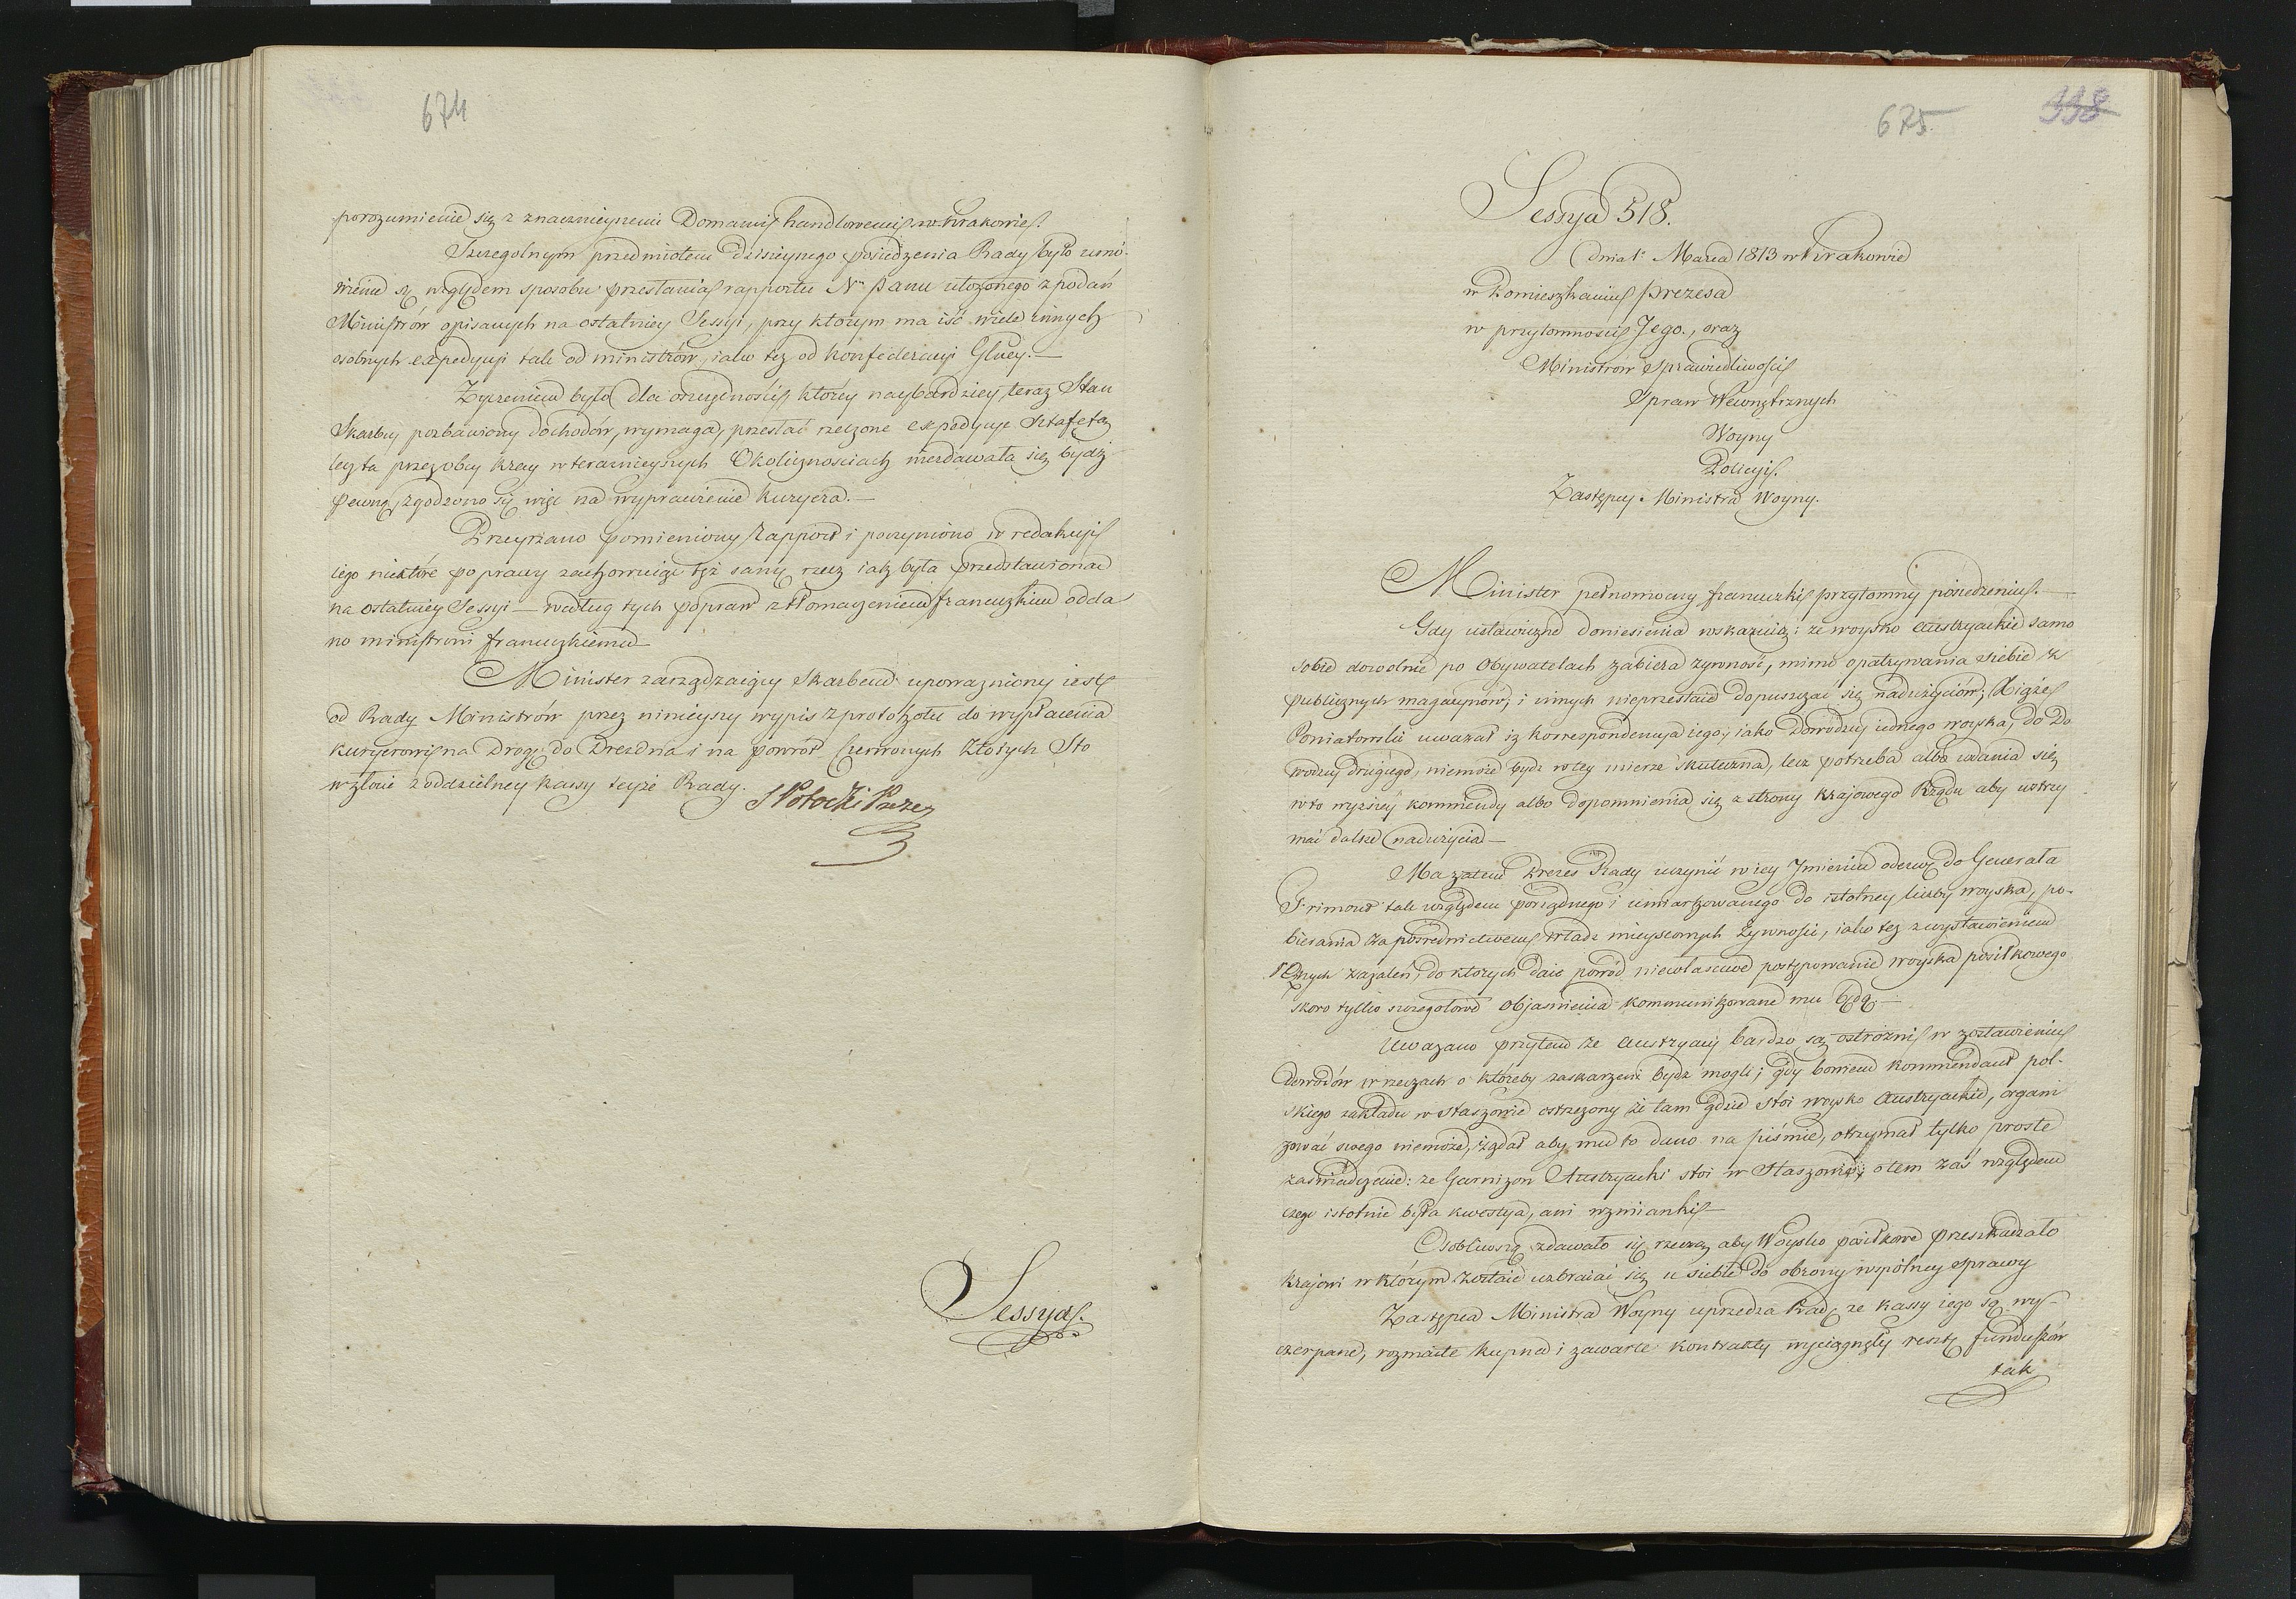 674
porozumienie się z znacznieyszemi Domami handlowemi w Krakowie.
Szczegolnym przedmiotem dzisieyszego posiedzenia Rady było umó-
wienie się względem sposobu przesłania rapportu Nu Panu ułożonego z podań
Ministrów opisanych na ostatniey Sessyi, przy ktorym ma iść wiele innych
osobnych expedycyi tak od ministrów, iako też od Konfederacyi Glney.—
Życzeniem było dla oszczędności, którey naybardziey teraz Stan
Skarbu pozbawiony dochodów, wymaga, przesłać rzeczone expedycye sztafetą
lecz ta przez obcy kray w teraznieyszych Okolicznosciach niezdawała się bydź
pewną, zgodzono się więc na wyprawienie kuryera.—
Przeyrzano pomieniony rapport i poczyniono w redakcyi
iego niektóre poprawy zachowuiąc tęż samę rzecz iak była przedstawiona
na ostatniey Sessyi — według tych popraw z tłomaczeniem francuzkim odda
no ministrowi francuzkiemu
Minister zarządzaiący Skarbem upoważniony iest
od Rady Ministrów przez ninieyszy wypis z protokołu do wypłacenia
kuryerowi na drogę do Drezna i na powrót Czerwonych Złotych Sto
w złocie z oddzielney kassy teyże Rady.
S Potocki Prezes
Sessya.
675
338
Sessya 518.
dnia 1o Marca 1813 w Krakowie
w Pomieszkaniu Prezesa
w przytomności Jego, oraz
Ministrów Sprawiedliwości
Spraw Wewnętrznych
Woyny
Policyi.
Zastępcy Ministra Woyny.
Minister pełnomocny francuzki przytomny posiedzeniu.—
Gdy ustawiczne doniesienia wskazuią: że woysko austryackie samo
sobie dowolnie po Obywatelach zabiera żywność, mimo opatrywania siebie z
publicznych magazynów, i innych nieprzestaie dopuszczać się nadużyciów; Xiąże
Poniatowski uważał iż korrespondencya iego, iako Dowódzcy iednego woyska, do Do
wodzcy drugiego, niemoże bydz w tey mierze skuteczna, lecz potrzeba albo udania się
w to wyższey kommendy albo dopomnienia się z strony Krajowego Rządu aby wstrzy
mać dalsze nadużycia—
Ma zatem Prezes Rady uczynić w iey Jmieniu odezwę do Generała
Frimont tak względem porządnego i umiarkowanego do istotney liczby woyska, po-
bierania za pośrednictwem Władz mieyscowych Żywności, iako też z wystawieniem
innych zażaleń, do ktorych daie powód niewłaściwe postępowanie woyska posiłkowego
skoro tylko szczegołowe objasnienia kommunikowane mu będą—
Uważano przytem że Austryacy bardzo są ostrożni w zostawieniu
dowodów w rzeczach o któreby zaskarżeni bydź mogli; gdy bowiem kommendant pol-
skiego zakładu w Staszowie ostrzeżony że tam gdzie stoi woysko Austryackie, organi
zować swego niemoże, żądał aby mu to dano na piśmie, otrzymał tylko proste
zaświadczenie: że Garnizon Austryacki stoi w Staszowie; o tem zaś względem
czego istotnie była kwestya, ani wzmianki—
Osobliwszą zdawało się rzeczą, aby Woysko posiłkowe przeszkadzało
krajowi w którym zostaie uzbraiać się u siebie do obrony wspólney sprawy
Zastępca Ministra Woyny uprzedza Radę że kassy iego są wy-
czerpane, rozmaite kupna i zawarte kontrakty wyciągnęły resztę funduszów
tak